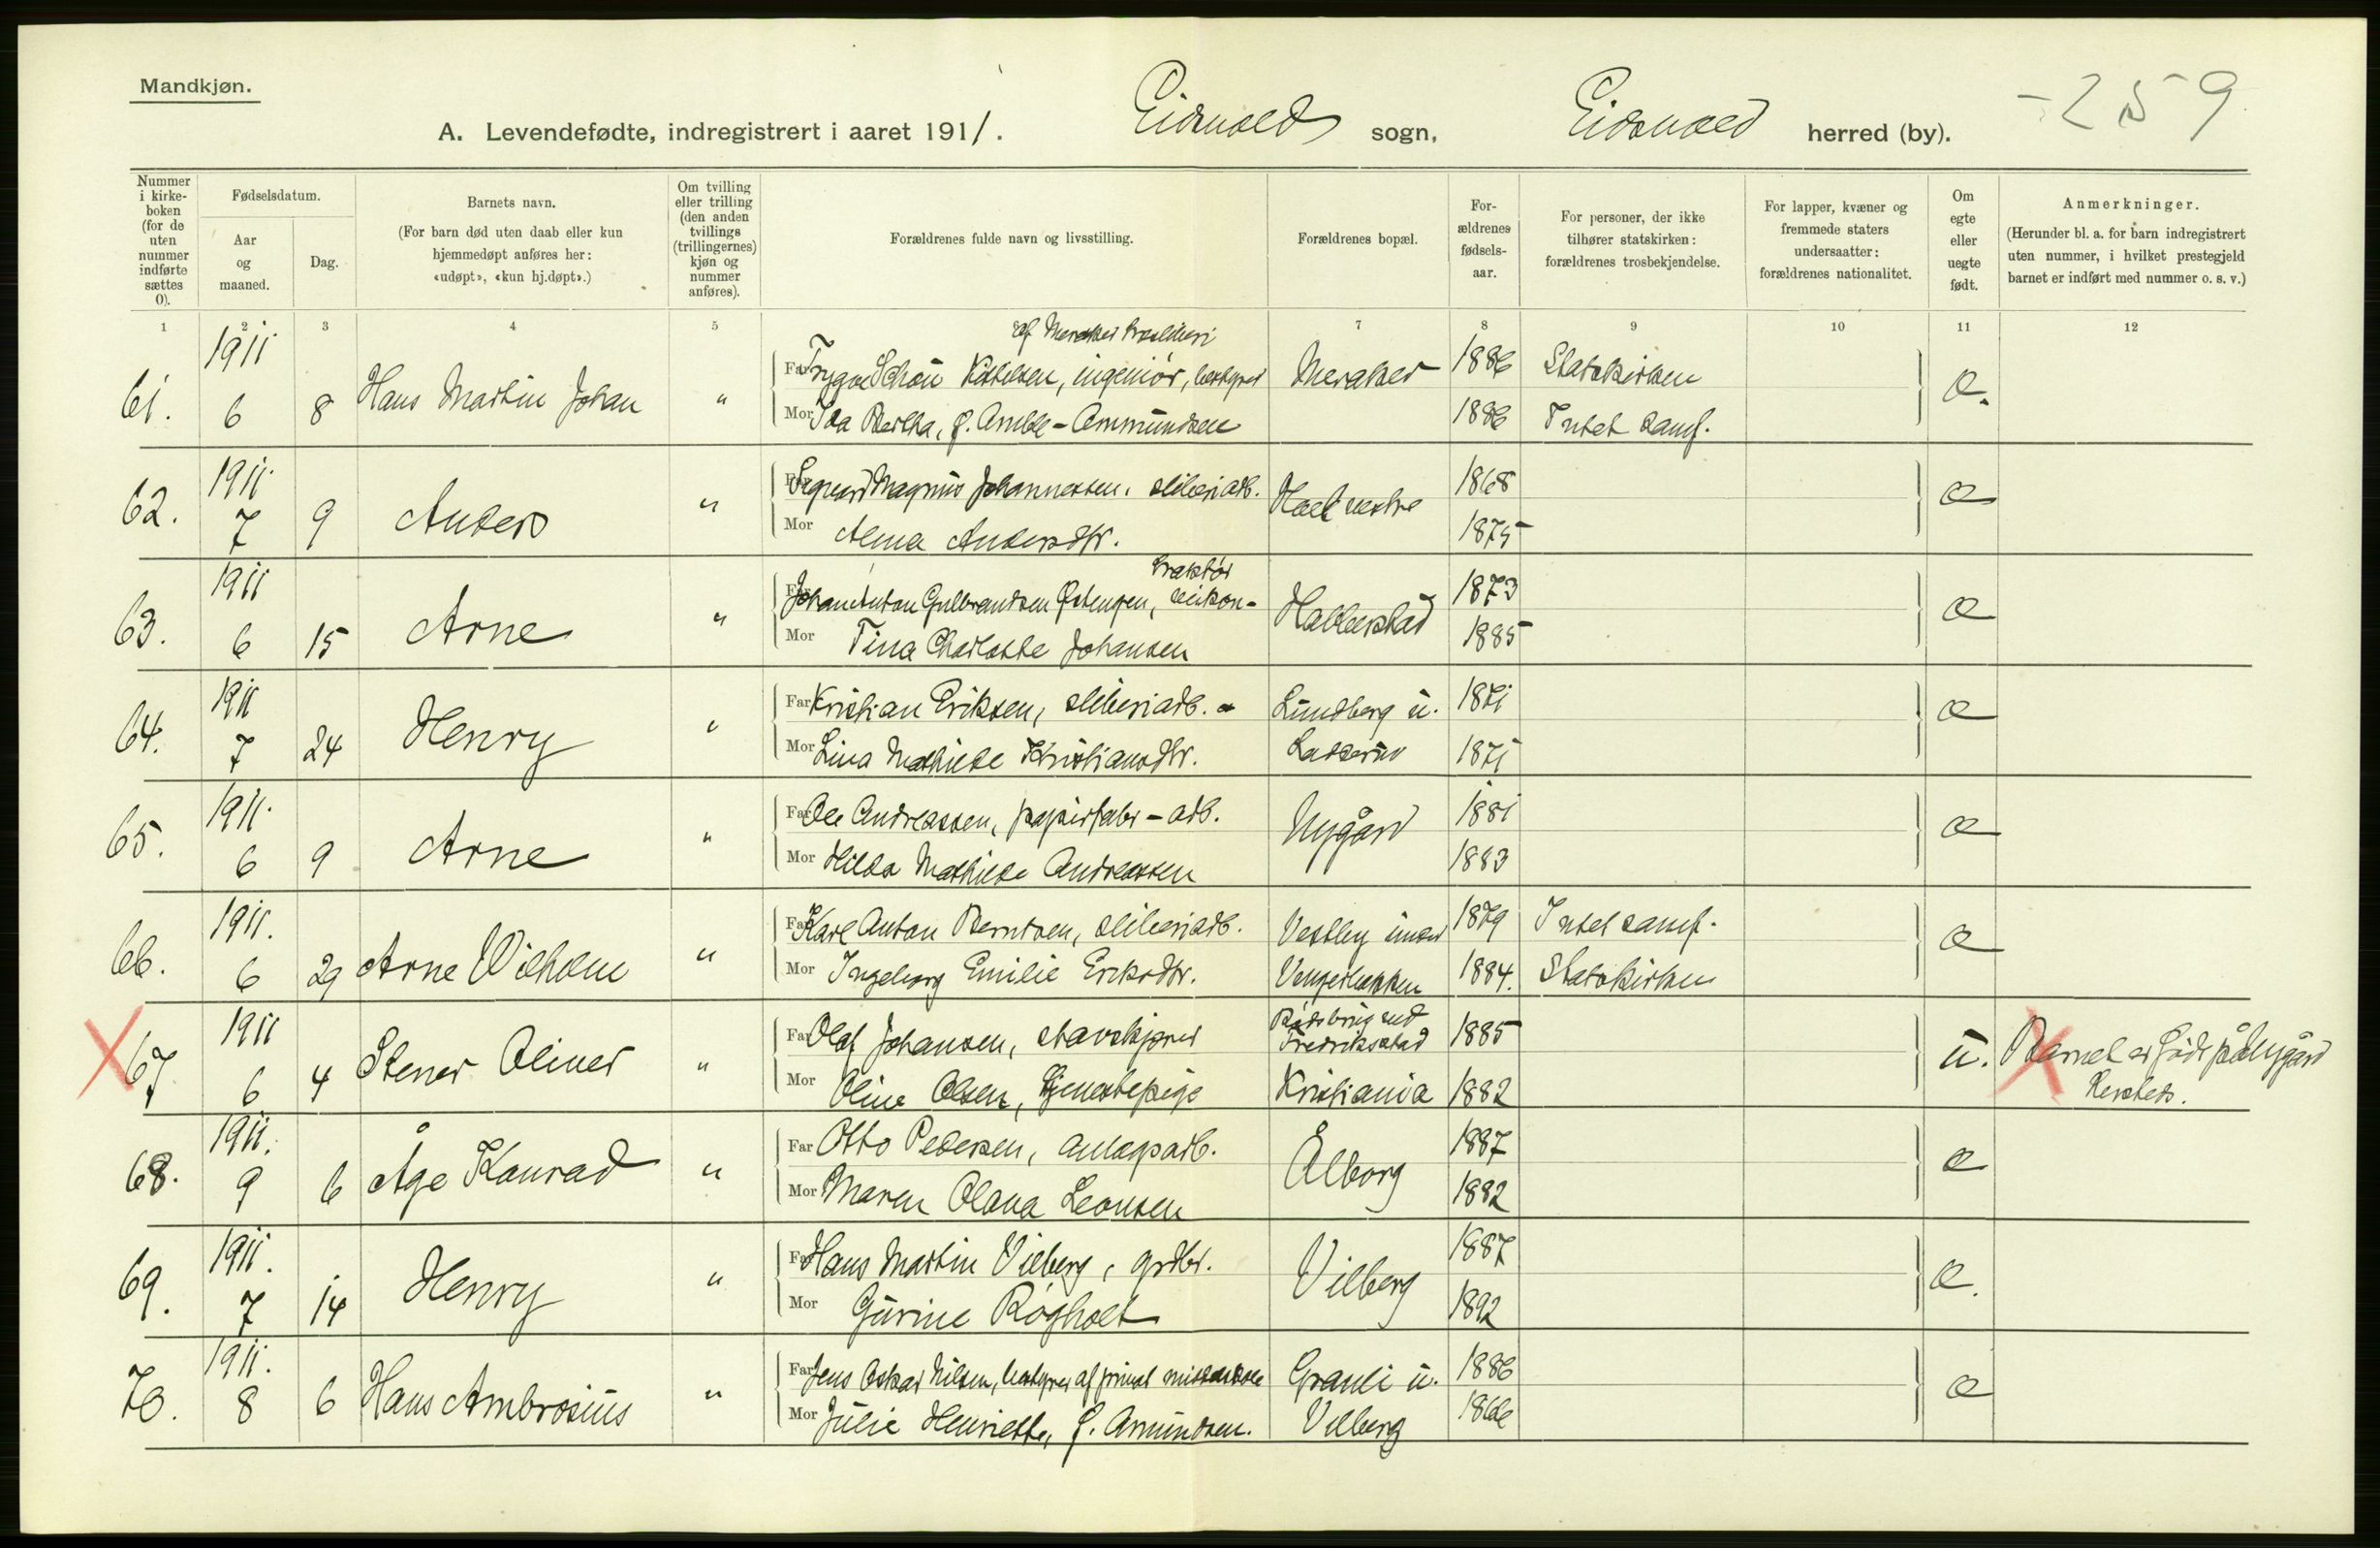 Mandkjøn.
A. Levendefødte, indregistrert i aaret 1911. Eidsvold sogn, Eidsvold herred (by). -259
Nummer i kirke-boken (for de uten nummer indførte sættes 0).
Fødselsdatum.
Aar og maaned.
Dag.
Barnets navn.
(For barn død uten daab eller kun hjemmedøpt anføres her: «udøpt», «kun hj.døpt».)
Om tvilling eller trilling (den anden tvillings (trillingernes) kjøn og nummer anføres).
Forældrenes fulde navn og livsstilling.
Forældrenes bopæl.
For-ældrenes fødsels-aar.
For personer, der ikke tilhører statskirken: forældrenes trosbekjendelse.
For lapper, kvæner og fremmede staters undersaatter: forældrenes nationalitet.
Om egte eller uegte født.
Anmerkninger.
(Herunder bl. a. for barn indregistrert uten nummer, i hvilket prestegjeld barnet er indført med nummer o. s. v.)
1 2 3 4 5 7 8 9 10 11 12
61. 1911 6 8 Hans Martin Johan "
af Meraker træsliberi
Far Trygve Schøn Kettelsen, ingeniør, bestyrer Meraker 1886 Statskirken
Mor Ida Bertha, f. Amble-Ammundsen 1886 Intet samf. e.
62. 1911. 7 9 Anders "
Far Sigvard Magnus Johannessen, sliberiarb. Hoel vestre 1868
Mor Alma Andersdtr. 1875 e
63. 1911 6 15 Arne "
traktør
Far Johan Anton Gulbrandsen Østengen, Hallerstad 1873
Mor Tina Charlotte Johansen 1885 e
64. 1911 7 24 Henry "
Far Kristian Eriksen, sliberiarb. Lundberg u. 1871
Mor Lina Mathilde Kristiansdtr. 1871 e
65. 1911. 6 9 Arne "
Far Ole Andreassen, papirfabr-arb. Nygård 1881
Mor Hilda Mathilde Andreassen 1883 e
66. 1911. 6 29 Arne Wilhelm "
Far Karl Anton Berntsen, sliberiarb. Vestby under 1879 Intet samf.
Mor Ingeborg Emilie Eriksdtr. 1884. Statskirken e
67 1911 6 4 Stener Oliver "
Far Olaf Johansen, stavskjærer Fredrikstad 1885
Mor Oline Olsen, tjenestepige Kristiania 1882 u. Barnet er født på Nygård
68. 1911. 9 6 Åge Konrad "
Far Otto Pedersen, anlægsarb. Ålborg 1887
Mor Maren Olava Leonsen 1882 e
69. 1911. 7 14 Henry "
Far Hans Martin Vilberg, grdbr. Vilberg 1887
Mor Gurine Røgholt 1892 e.
70. 1911. 8 6 Hans Ambrosius "
Far Jens Oskar Nilsen, bestyrer af privat Grauli u. 1886
Mor Julie Henriette, f. Amundsen. Vilberg e